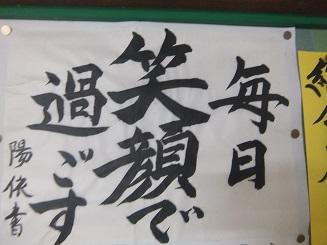 毎日
笑顔で
過ごす
陽依書